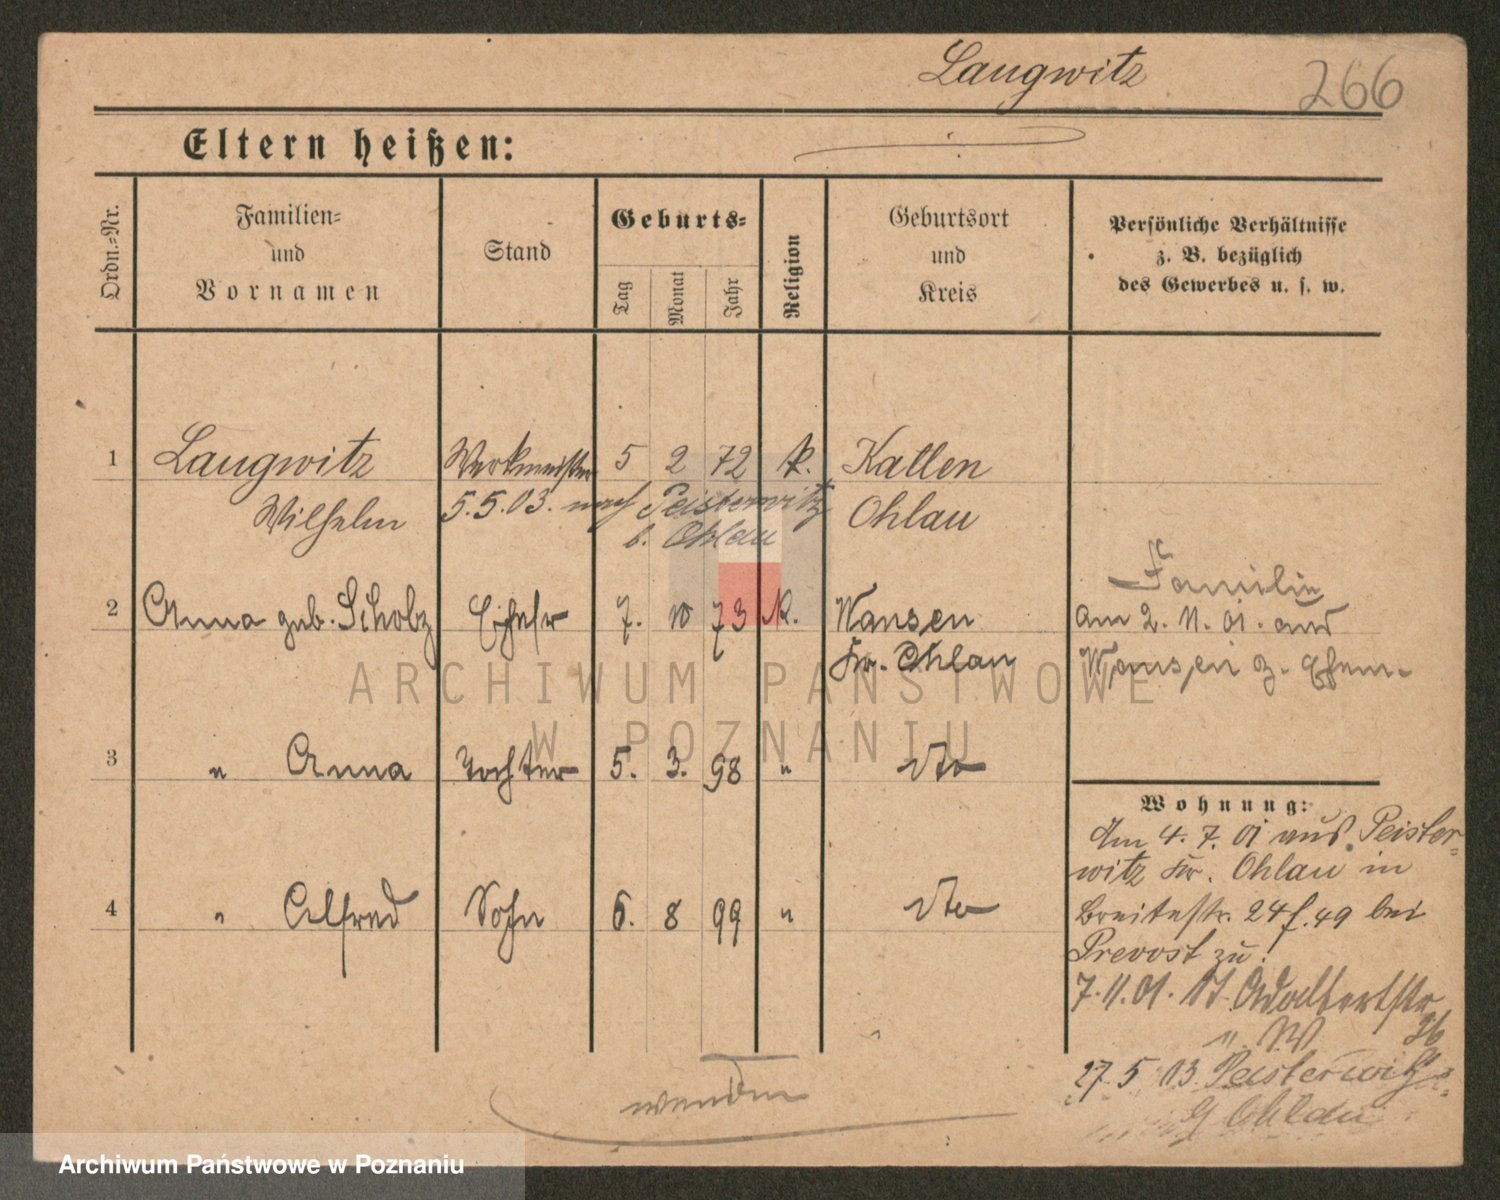 Langwitz 266
Eltern heißen:
Ordn.=Nr.
Familien=
und
Vornamen
Stand
Geburts=
Tag
Monat
Jahr
Religion
Geburtsort
und
Kreis
Persönliche Verhältnisse
z. B. bezüglich
des Gewerbes u. s. w.
1 Langwitz Werkmeister 5 2 72 k. Kallen
Wilhelm 5.5.03. nach Peisterwitz Ohlau
b. Ohlau
2 Anna geb. Scholz Ehefr 7. 10 73 k. Wansen
Kr. Ohlau
3 " Anna Tochter 5. 3. 98 " dto
4 " Alfred Sohn 6. 8 99 " dto
Familie
am 2. 11. 01. aus
Wansen z. Ehem.
Wohnung:
Am 4. 7. 01 aus Peister=
witz Kr. Ohlau in
Breitestr. 24 f. 49 bei
Prevost zu.
7. 11. 01. Adalbertstr
" W 26
27. 5 03. Peisterwitz
Ohlau
wenden
ARCHIWUM PAŃSTWOWE
W POZNANIU
Archiwum Państwowe w Poznaniu